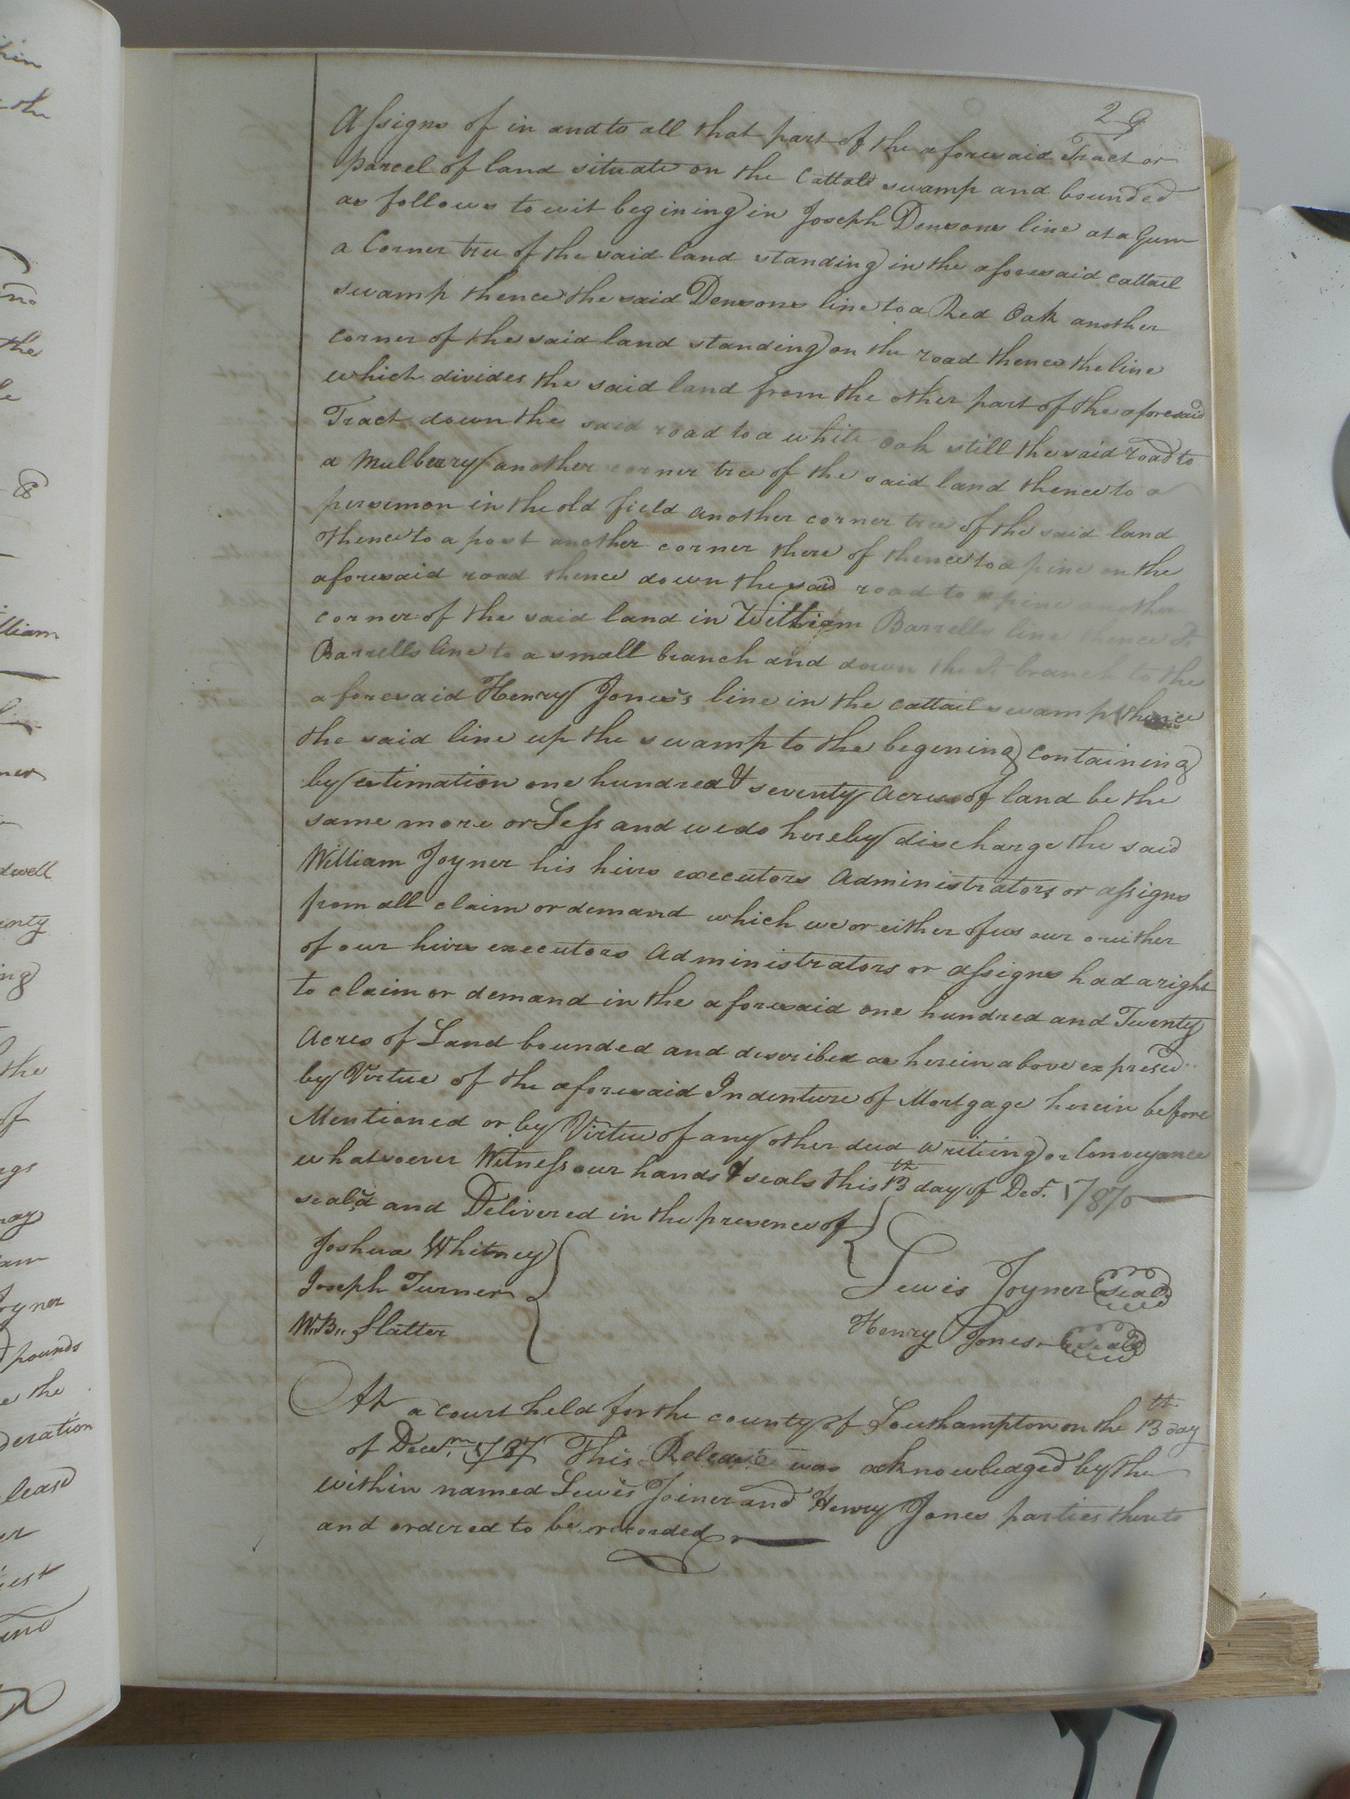 29
Assigns of in and to all that part of the aforesaid Tract or
parcel of land situate on the Cattale swamp and bounded
as follows to wit begining in Joseph Densons line at a Gum
a Corner tree of the said land standing in the aforesaid cattail
swamp thence the said Densons line to a Red Oak another
corner of the said land standing on the road thence the line
which divides the said land from the other part of the aforesaid
Tract down the said road to a white oak still the said road to
a Mulberry another corner tree of the said land thence to a
persimon in the old field another corner tree of the said land
thence to a post another corner there of thence to a pine on the
aforesaid road thence down the said road to a pine another
corner of the said land in William Barrells line thence sd
Barrells line to a small branch and down the sd branch to the
aforesaid Henry Jones's line in the cattail swamp thence
the said line up the swamp to the begening containing
by estimation one hundred & seventy Acres of land be the
same more or Less and we do hereby discharge the said
William Joyner his heirs executors Administrators or assigns
from all claim or demand which we or either of us our or either
of our heirs executors Administrators or assigns had a right
to claim or demand in the aforesaid one hundred and Twenty
Acres of Land bounded and described as herein above expresed
by Virtue of the aforesaid Indenture of Mortgage herein before
Mentioned or by Virtue of any other deed writing or Conveyance
whatsoever Witness our hands & seals this 13th day of Decr. 1787
seal'd and Delivered in the presence of
Joshua Whitney
Joseph Turner
Lewis Joyner seal
W.B. Slatter
Henry Jones seal
At a court held for the county of Southampton on the 13th day
of Decem. 1787 This Release was acknowledged by the
within named Lewis Joiner and Henry Jones parties thereto
and ordered to be recorded